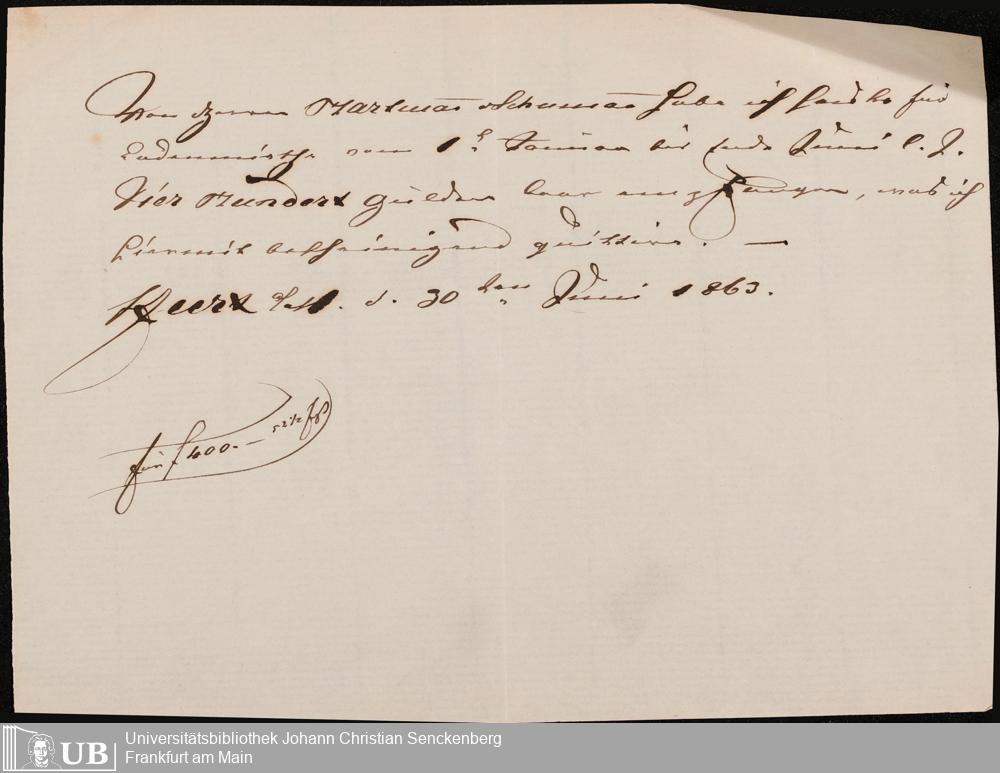 Von Herrn Hartmañ Schumañ habe ich heute für
Ladenmiethe vom 1t Januar bis Ende Juni l. J.
Vier Hundert Gulden baar empfangen, was ich
hiermit bescheinigend quittire. —
d. 30ten Juni 1863.
für f 400.— 52½
UB
Universitätsbibliothek Johann Christian Senckenberg
Frankfurt am Main